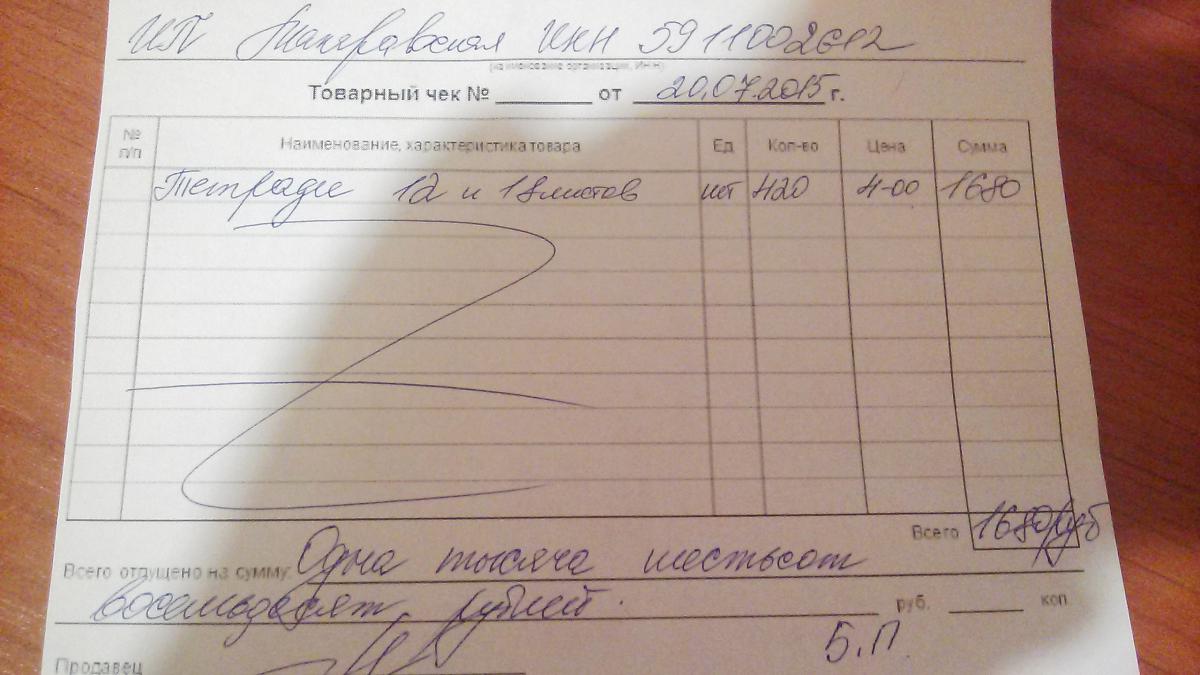 ИП ИНН 5911002612
(наименование организации, ИНН)
Товарный чек № от 20.07.2015 г.
№ п/п Наименование, характеристика товара Ед Кол-во Цена Сумма
Тетради 12 и 18 листов шт 420 4-00 1680
Всего 1680 руб
Всего отпущено на сумму: Одна тысяча шестьсот
восемьдесят рублей. руб. коп.
Б.П.
Продавец